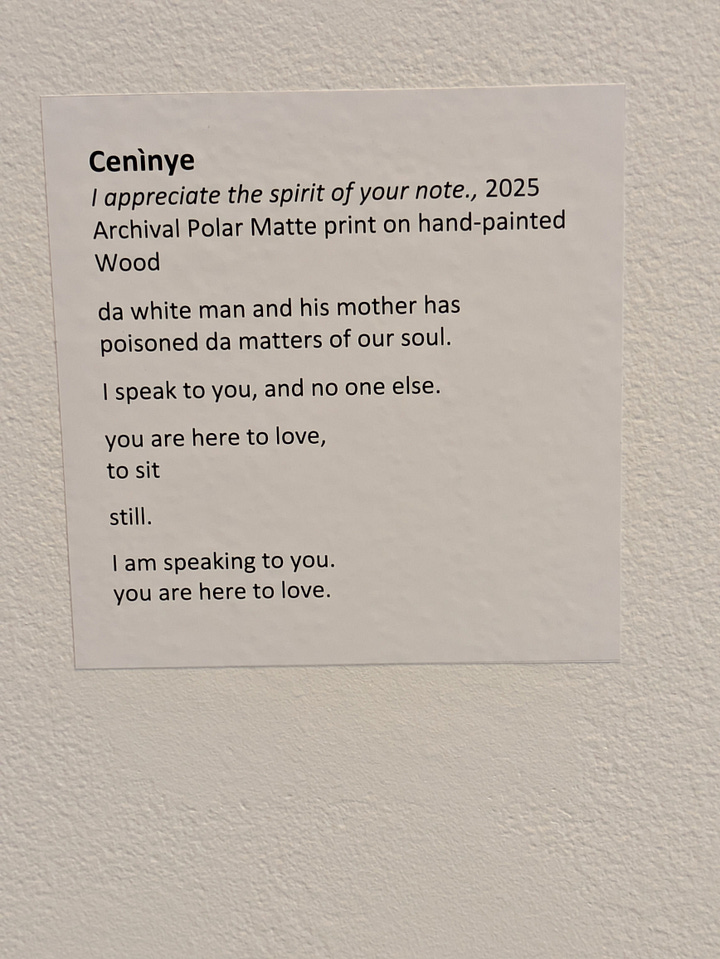 Ceninye
I appreciate the spirit of your note., 2025
Archival Polar Matte print on hand-painted
Wood
da white man and his mother has
poisoned da matters of our soul.
I speak to you, and no one else.
you are here to love,
to sit
still.
I am speaking to you.
you are here to love.